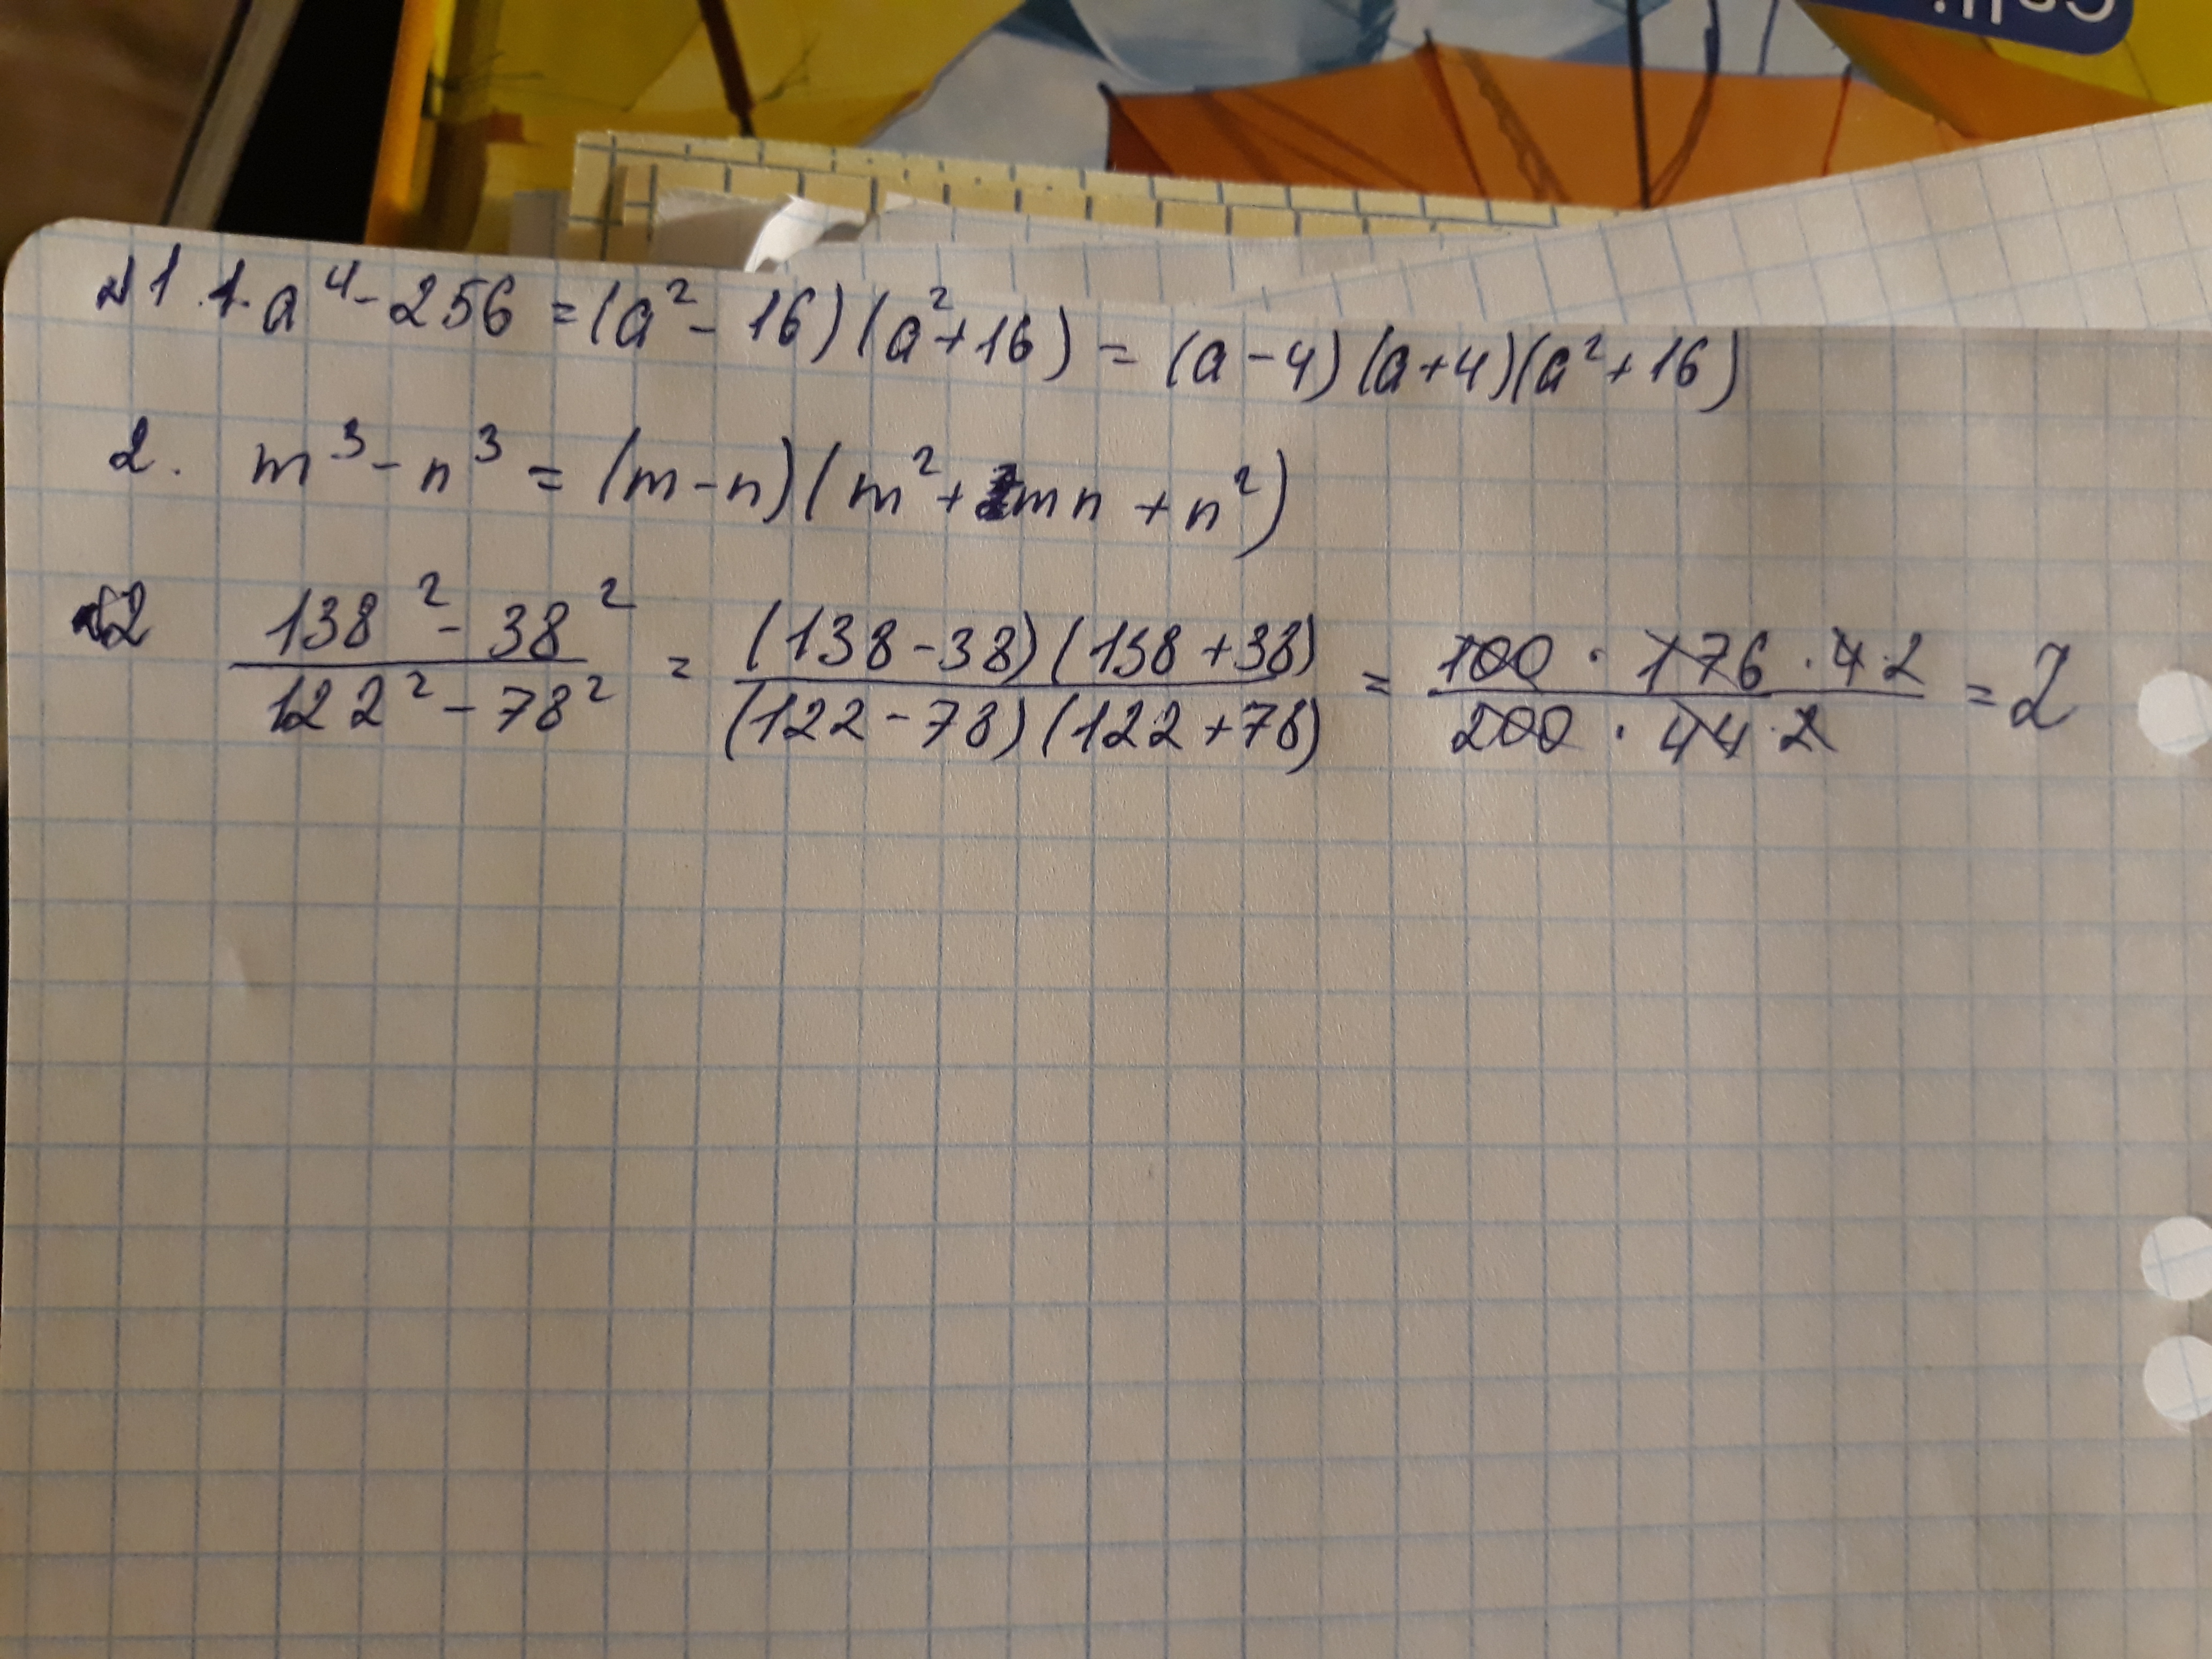 №1 1. a⁴ - 256 = (a² - 16)(a² + 16) = (a - 4)(a + 4)(a² + 16)
2. m³ - n³ = (m - n)(m² + mn + n²)
№2 (138² - 38²)/(122² - 78²) = ((138 - 38)(138 + 38))/((122 - 78)(122 + 78)) = (100 · 176 · 4 2)/(200 · 44 2) = 2